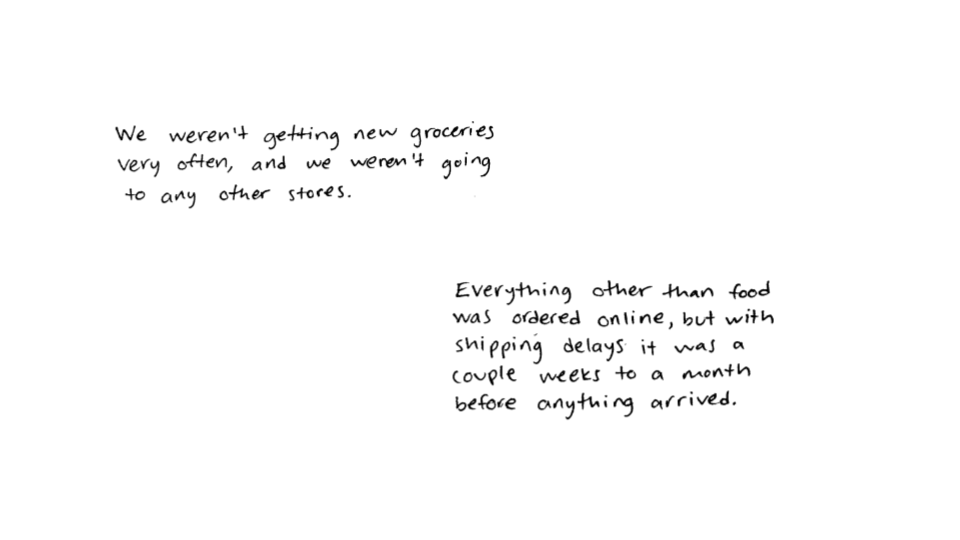 We weren't getting new groceries
very often, and we weren't going
to any other stores.
Everything other than food
was ordered online, but with
shipping delays it was a
couple weeks to a month
before anything arrived.